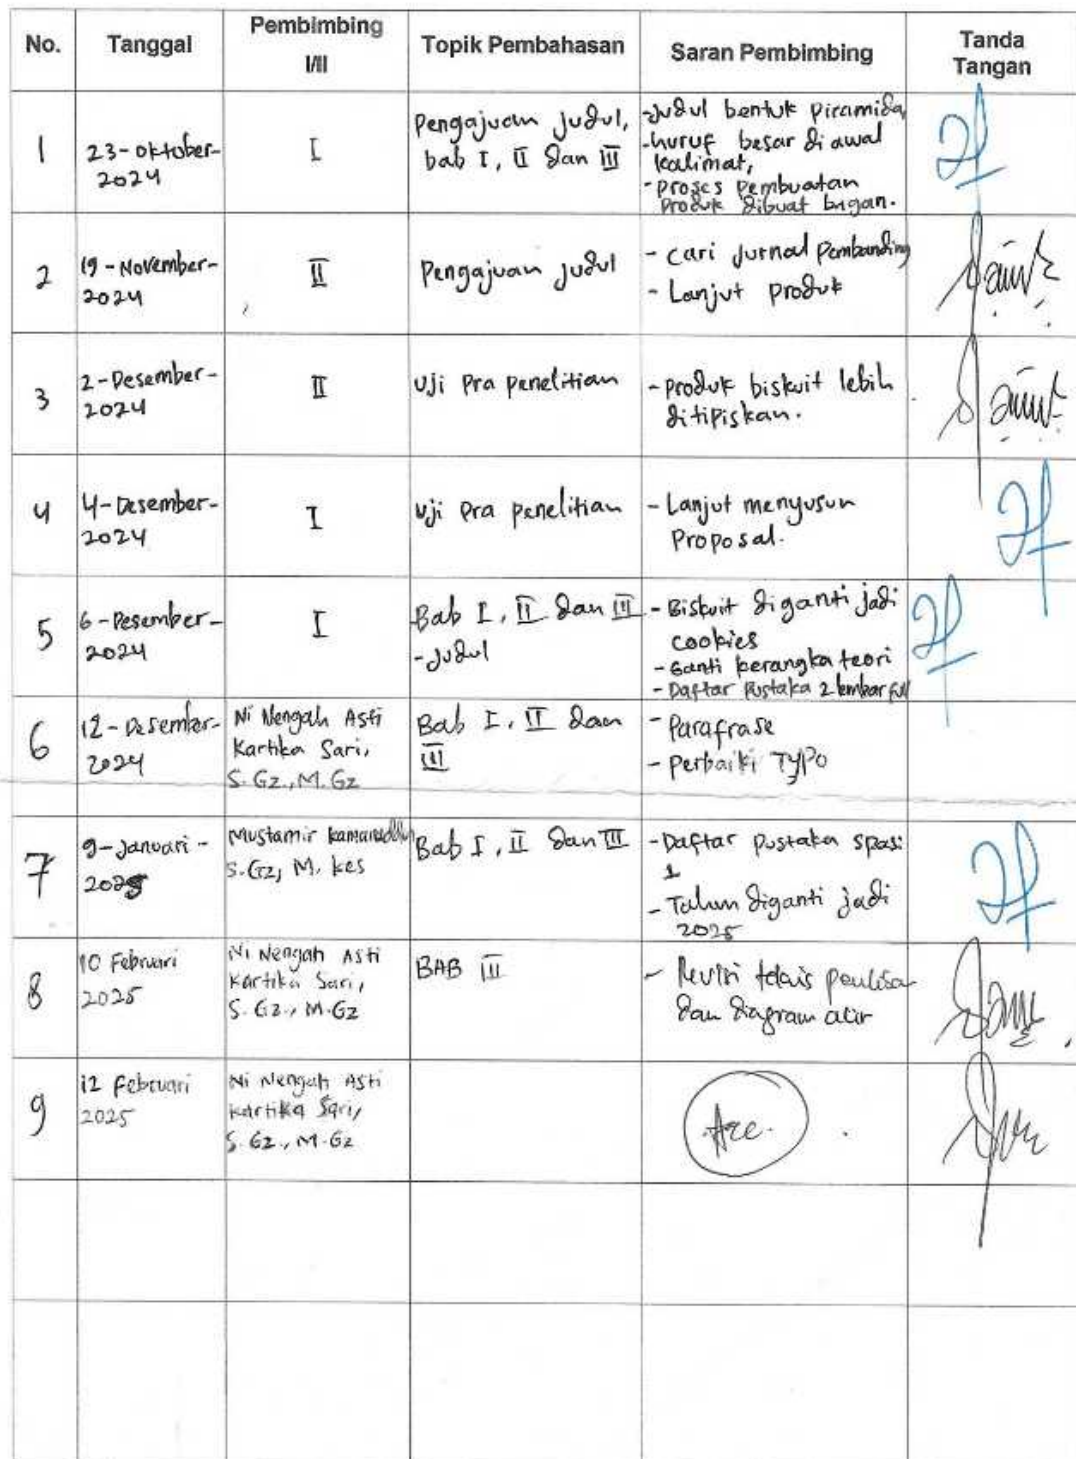 No. Tanggal Pembimbing I/II Topik Pembahasan Saran Pembimbing Tanda Tangan
1
23-Oktober-
2024
I
Pengajuan Judul,
bab I, II dan III
-Judul bentuk piramida
-huruf besar di awal
kalimat,
-proses pembuatan
produk dibuat bagan.
2
19-November-
2024
II
Pengajuan Judul
- Cari Jurnal Pembanding
- Lanjut produk
3
2-Desember-
2024
II
Uji Pra penelitian
-produk biskuit lebih
ditipiskan.
4
4-Desember-
2024
I
Uji Pra penelitian
- Lanjut menyusun
Proposal.
5
6-Desember-
2024
I
Bab I, II dan III
-Judul
- Biskuit diganti jadi
cookies
- Ganti kerangka teori
- Daftar Pustaka 2 lembar full
6
12-Desember-
2024
Ni Nengah Asti
Kartika Sari,
S.Gz., M.Gz
Bab I, II dan
III
- Parafrase
- Perbaiki TYPO
7
9-Januari-
2025
Mustamir Kamaruddin
S.Gz, M.Kes
Bab I, II dan III
-Daftar Pustaka spasi
1
- Tahun diganti jadi
2025
8
10 Februari
2025
Ni Nengah Asti
Kartika Sari,
S.Gz., M.Gz
BAB III
- Revisi teknis penulisa
dan diagram alir
9
12 Februari
2025
Ni Nengah Asti
Kartika Sari,
S.Gz., M.Gz
Acc.